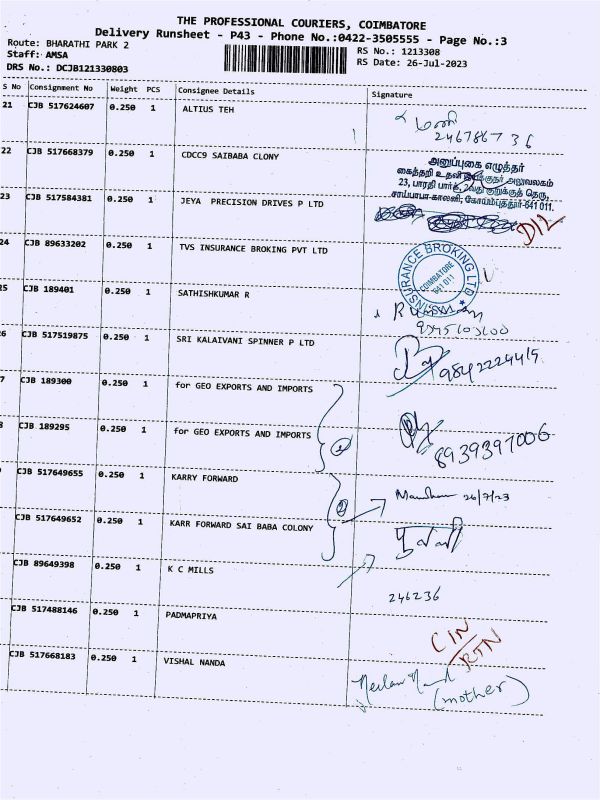 THE PROFESSIONAL COURIERS, COIMBATORE
Delivery Runsheet - P43 - Phone No.:0422-3505555 - Page No.:3
Route: BHARATHI PARK 2
RS No.: 1213308
Staff: AMSA
RS Date: 26-Jul-2023
DRS No.: DCJB121330803
S No Consignment No Weight PCS Consignee Details Signature
21 CJB 517624607 0.250 1 ALTIUS TEH
மணி
2467867 36
22 CJB 517668379 0.250 1 CDCC9 SAIBABA CLONY
அனுப்புகை எழுத்தர்
கைத்தறி உதவி இயக்குநர் அலுவலகம்
23, பாரதி பார்க், 2வது குறுக்குத் தெரு,
சாய்பாபா காலனி, கோயம்புத்தூர்-641 011.
23 CJB 517584381 0.250 1 JEYA PRECISION DRIVES P LTD
D/L
24 CJB 89633202 0.250 1 TVS INSURANCE BROKING PVT LTD
INSURANCE BROKING LTD
COIMBATORE
641 011
25 CJB 189401 0.250 1 SATHISHKUMAR R
6 CJB 517519875 0.250 1 SRI KALAIVANI SPINNER P LTD
9842224415
7 CJB 189300 0.250 1 for GEO EXPORTS AND IMPORTS
8 CJB 189295 0.250 1 for GEO EXPORTS AND IMPORTS
8939397006
CJB 517649655 0.250 1 KARRY FORWARD
26/7/23
2
CJB 517649652 0.250 1 KARR FORWARD SAI BABA COLONY
CJB 89649398 0.250 1 K C MILLS
246236
CJB 517488146 0.250 1 PADMAPRIYA
CIN
RTN
CJB 517668183 0.250 1 VISHAL NANDA
(mother)